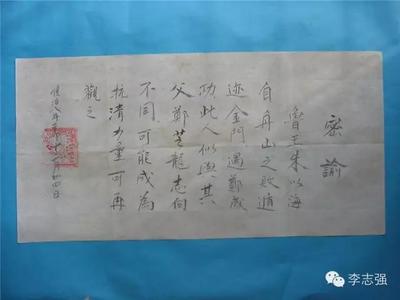 密諭
魯王朱以海
自舟山之敗遁
迹金門遇鄭成
功此人似與其
父鄭芝龍志向
不同可能成為
抗清力量可再
觀之
順治八年十月廿四日
李志强